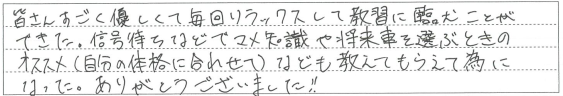 皆さんすごく優しくて毎回リラックスして教習に臨むことが
できた。信号待ちなどでマメ知識や将来車を選ぶときの
オススメ(自分の体格に合わせて)なども教えてもらえて為に
なった。ありがとうございました!!